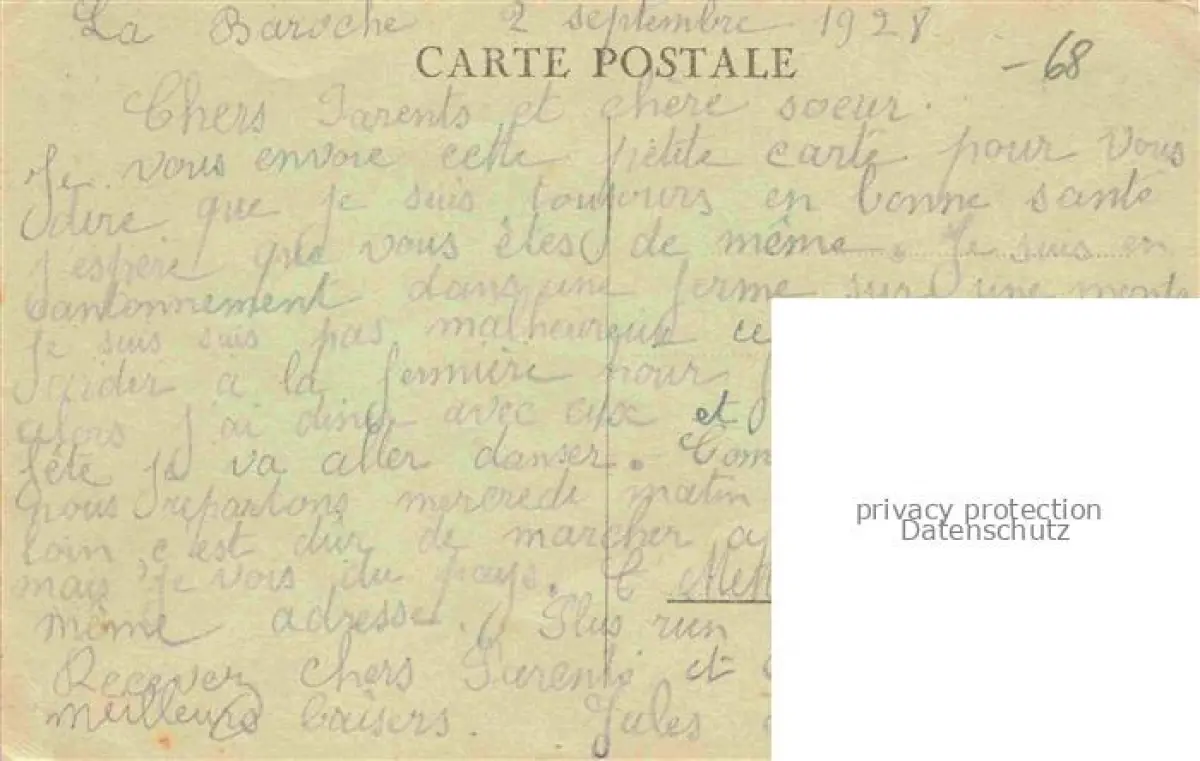 La Baroche 2 septembre 1928
CARTE POSTALE
-68
Chers Parents et chère soeur.
Je vous envoie cette petite carte pour vous
dire que je suis toujours en bonne santé
j'espère que vous êtes de même. Je suis en
cantonnement dans une ferme sur une mont
Je suis suis pas malheureux ce
aider a la fermière pour
alors j'ai diner avec eux et
fête je va aller danser. Com
nous repartons mercredi matin
loin c'est dur de marcher a
mais je vois du pays.
même adresse. Plus rien
Recever chers Parents et
meilleurs baisers. Jules
privacy protection
Datenschutz